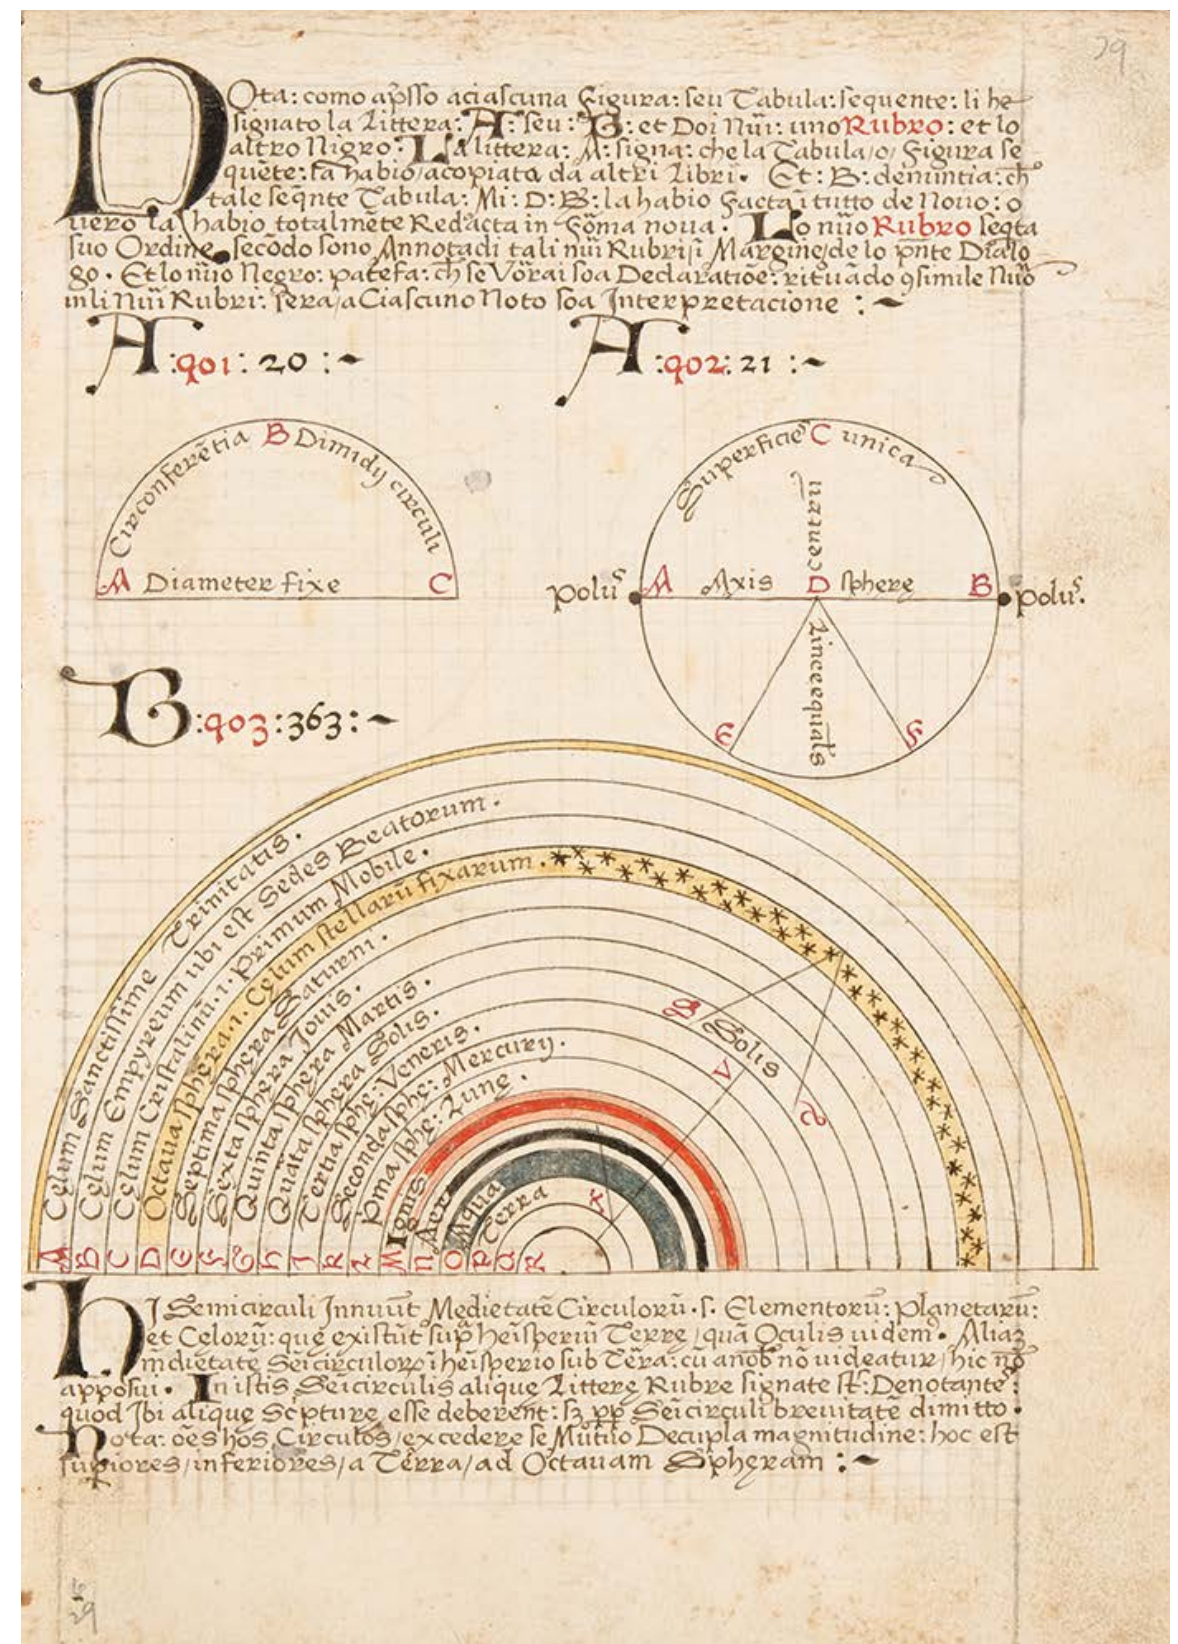 29
NOta: como ap̃sso aciascuna Figura: seu Tabula: sequente: li he
signato la Littera: A: seu: B: et Doi Nũi: uno Rubro: et lo
altro Nigro: La littera: A: signa: che la Tabula/o/ Figura se
quẽte: fa habio/acopiata da altri Libri. Et: B: denuntia: ch̃
tale seq̃nte Tabula: Mi: D: B: la habio Facta ĩ tutto de Nouo: o
uero la habio totalmẽte Redacta in Fõma noua. Lo nũo Rubro seq̃ta
suo Ordine, secõdo sono Annotadi tali nũi Rubri ĩ Margine/de lo p̃nte Dialo
go. Et lo nũo Negro: patefa: ch̃ se Võrai soa Declaratiõe: rituãdo 9simile Nũo
in li Nũi Rubri: sera/a Ciascuno Noto soa Interpretacione :~
A:901: 20 :~
A:902: 21 :~
Circonferẽtia B Dimidij circuli
A Diameter fixe C
Superficies C unica
centrum
polus A Axis D sphere B polus.
Linee equales
E F
B:903:363:~
Celum Sanctissime Trinitatis.
Celum Empyreum ubi est Sedes Beatorum.
Celum Cristalinũ.i. Primum Mobile.
Octaua sphera.i. Celum stellarũ fixarum.
Septima sphera Saturni.
Sexta sphera Jouis.
Quinta sphera Martis.
Quãta sphera Solis.
Tertia sphe: Veneris.
Seconda sphe: Mercurij.
Pma sphe: Lune.
Ignis
Aer
Aqua
Terra
S Solis
V
X
A B C D E F G H I K L M N O P Q R
HI Semicirculi Innuũt Medietatẽ Circulorũ. s. Elementorũ: Planetarũ:
et Celorũ: que existũt sup̃ heĩsperiũ Terre/quã Oculis uidem9. Aliaz
m̃dietatẽ Seĩcirculorz ĩ heĩsperio sub Tẽra: cũ a nob̃ nõ uideatur/hic nõ
apposui. In istis Seĩcirculis alique Littere Rubre signate st̃: Denotante:
quod Ibi alique Scpture esse deberent: sz pp̃ Seĩcirculi breuitatẽ dimitto.
Nota: oẽs hos Circulos/excedere se Mutuo Decupla magnitudine: hoc est
supiores/inferiores/a Tẽrra/ad Octauam Spheram :~
29